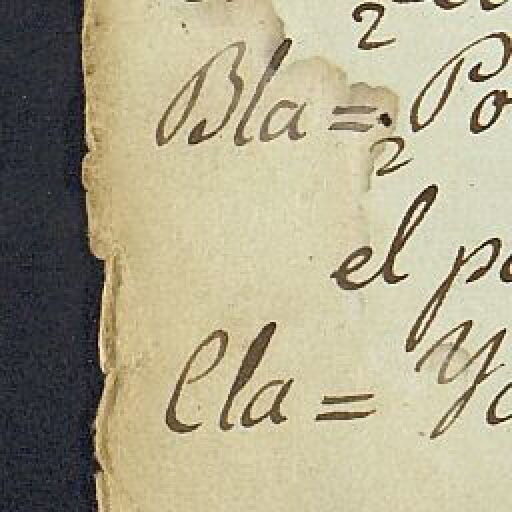 2
Bla = . Po
2
el pa
Cla = Yo